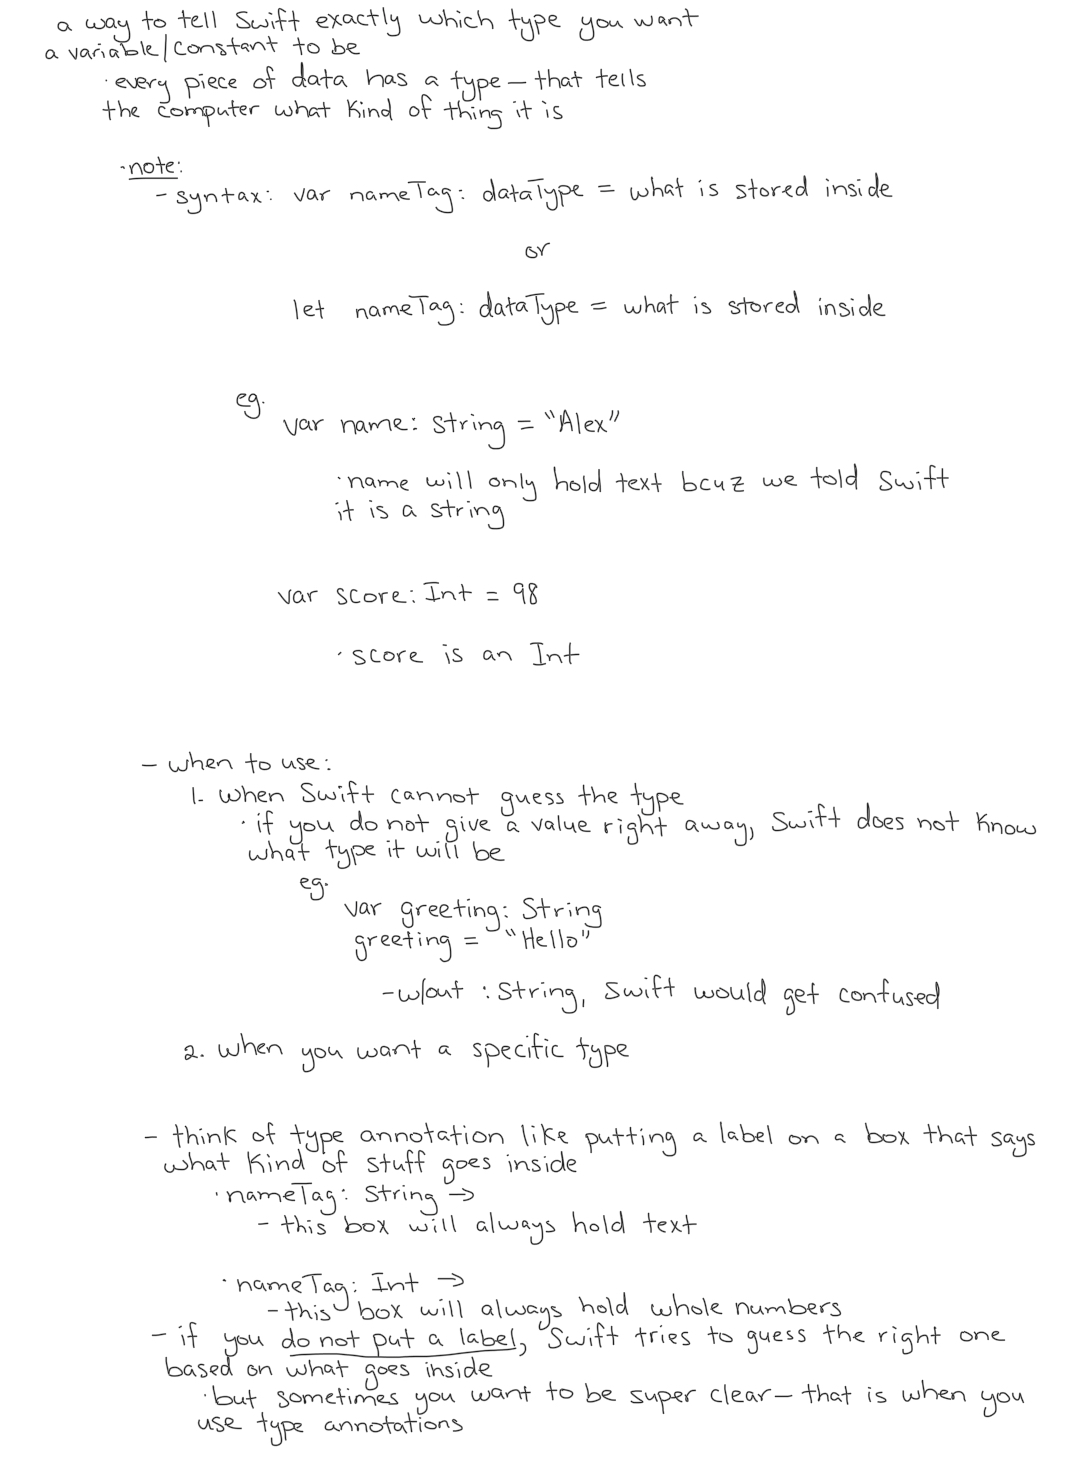 a way to tell Swift exactly which type you want
a variable/constant to be
· every piece of data has a type — that tells
the computer what kind of thing it is
· note:
- syntax: var nameTag: dataType = what is stored inside
or
let nameTag: dataType = what is stored inside
eg.
var name: String = "Alex"
· name will only hold text bcuz we told Swift
it is a string
var score: Int = 98
· score is an Int
- when to use:
1. when Swift cannot guess the type
· if you do not give a value right away, Swift does not know
what type it will be
eg.
var greeting: String
greeting = "Hello"
- w/out : String, Swift would get confused
2. when you want a specific type
- think of type annotation like putting a label on a box that says
what kind of stuff goes inside
· nameTag: String →
- this box will always hold text
· nameTag: Int →
- this box will always hold whole numbers
- if you do not put a label, Swift tries to guess the right one
based on what goes inside
· but sometimes you want to be super clear — that is when you
use type annotations